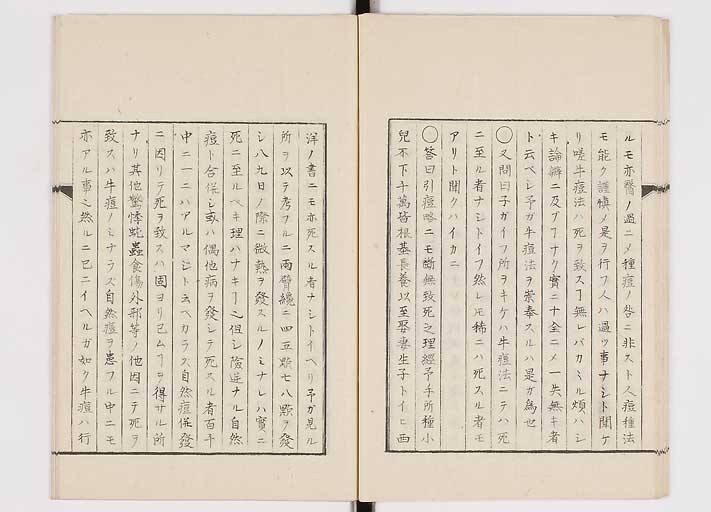 ルモ亦醫ノ過ニメ種痘ノ咎ニ非ストス痘種法
モ能ク謹愼メ是ヲ行フ人ハ過ツ事ナシト聞ケ
リ嗟牛痘法ハ死ヲ致スヿ無レバカヽル煩ハシ
キ論辨ニ及ブヿナク實ニ十全ニメ一失無キ者
ト云ベシ予ガ牛痘法ヲ崇奉スルハ是ガ爲也
◯又問曰子ガイフ所ヲキケハ牛痘法ニテハ死
ニ至ル者ナシトイフ然レ𪜈稀ニハ死スル者モ
アリト聞クハイカニ
◯答曰引痘略ニモ斷無致死之理經予手所種小
兒不下千萬皆根基長養以至娶妻生子トイヒ西
洋ノ書ニモ亦死スル者ナシトイヘリ予ガ見ル
所ヲ以テ考フルニ兩臂纔ニ四五顆七八顆ヲ發
シ八九日ノ際ニ微熱ヲ發スルノミナレハ實ニ
死ニ至ルベキ理ハナキヿ之但シ險逆ナル自然
痘ト合併シ或ハ偶他病ヲ發シテ死スル者百千
中ニ一二ハアルマシト云ヘカラズ自然痘併發
ニ因リテ死ヲ致スハ固ヨリ已ムヿヲ得サル所
ナリ其他驚悸蚘蟲食傷外邪等ノ他因ニテ死ヲ
致スハ牛痘ノミナラズ自然痘ヲ患フル中ニモ
亦アル事之然ルニ已ニイヘルガ如ク牛痘ハ行